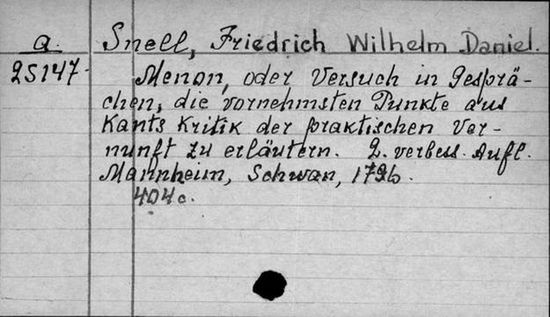 a. Snell, Friedrich Wilhelm Daniel.
25147. Menon, oder Versuch in Gesprä-
chen, die vornehmsten Punkte aus
Kants Kritik der praktischen Ver-
nunft zu erläutern. 2. verbess. Aufl.
Mannheim, Schwan, 1796.
404 c.